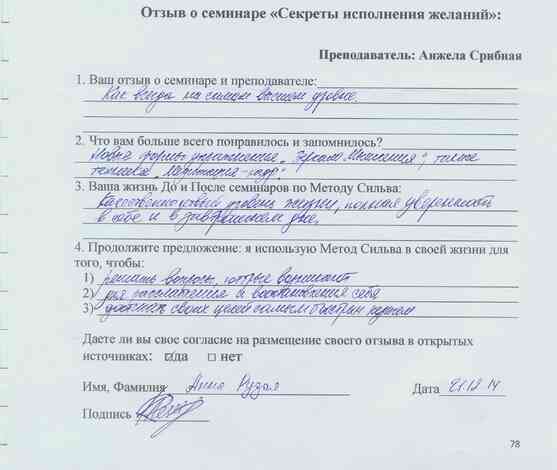 Отзыв о семинаре «Секреты исполнения желаний»:
Преподаватель: Анжела Срибная
1. Ваш отзыв о семинаре и преподавателе:
Как всегда на самом высшем уровне.
2. Что вам больше всего понравилось и запомнилось?
Новые формы упражнения „Зеркало Мышления", также
техника
3. Ваша жизнь До и После семинаров по Методу Сильва:
Качественно новый уровень жизни, полная уверенность
в себе и в завтрашнем дне.
4. Продолжите предложение: я использую Метод Сильва в своей жизни для
того, чтобы:
1) решать вопросы, которые возникают
2) для расслабления и восстановления себя
3) достигать своих целей самым быстрым путем
Даете ли вы свое согласие на размещение своего отзыва в открытых
источниках: ☑да □ нет
Имя, Фамилия Анна Рузая Дата 21.12.14
Подпись
78